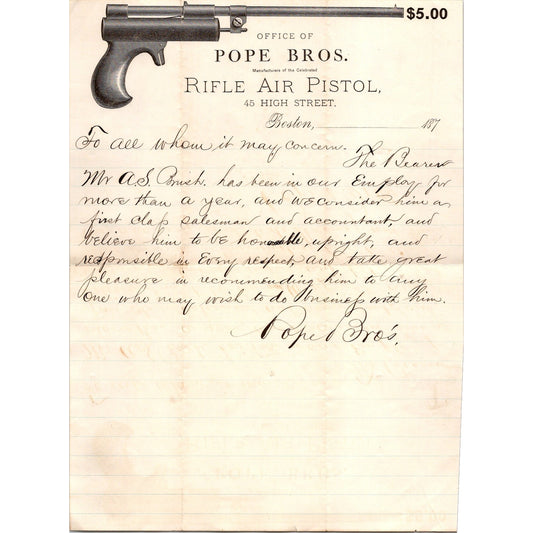 $5.00
OFFICE OF
POPE BROS.
Manufacturers of the Celebrated
RIFLE AIR PISTOL,
45 HIGH STREET,
Boston, 187
To all whom it may concern. The Bearer
Mr A.S. Brush. has been in our Employ for
more than a year, and we consider him a
first class salesman and accountant, and
believe him to be honorable, upright, and
responsible in Every respect, and take great
pleasure in recommending him to any
one who may wish to do business with him.
Pope Bro's.